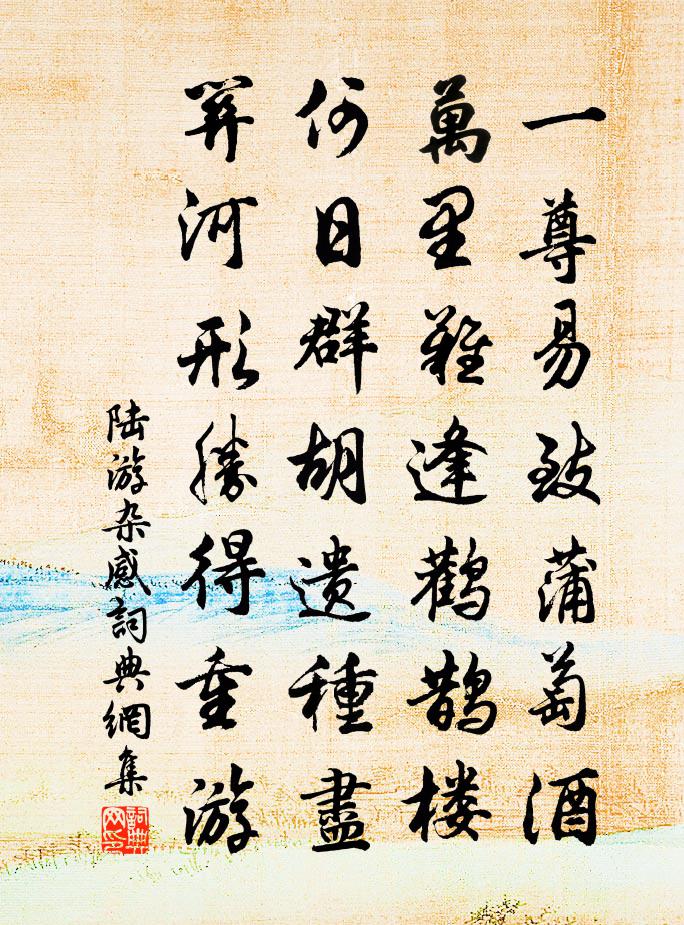 一尊易致蒲萄酒
萬里難逢鸛鵲楼
何日群胡遗種盡
關河形勝得重游
陆游杂感詞典網集
詞典网印